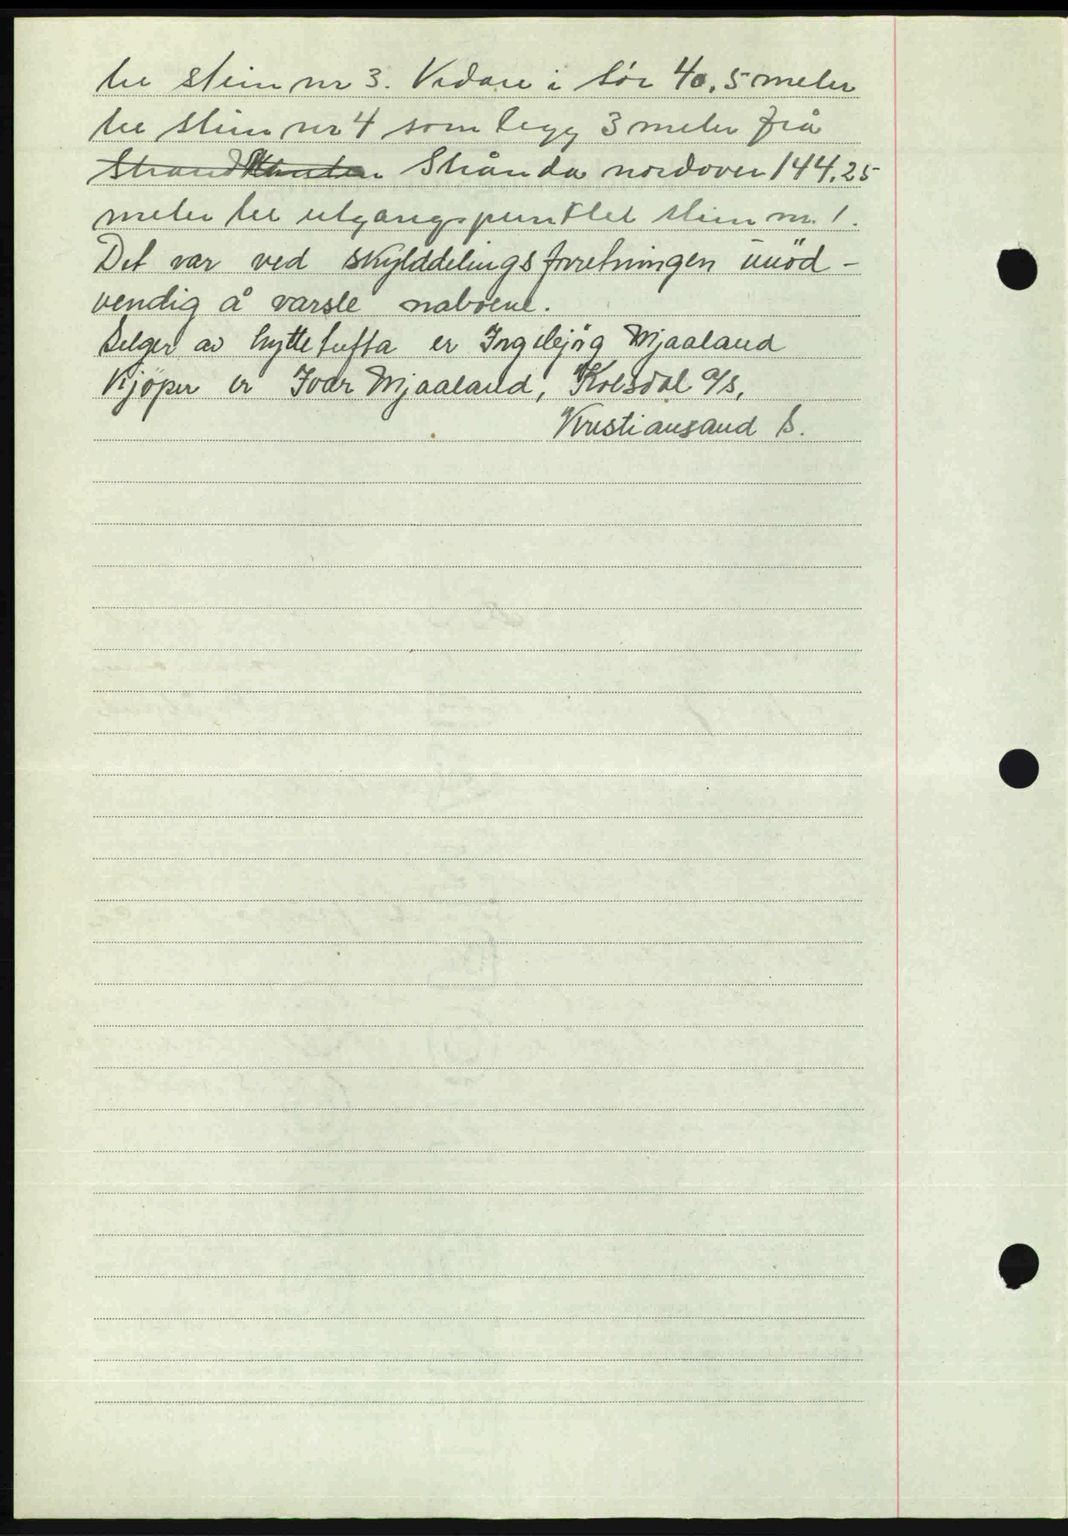 til stein nr 3. Vidare i sör 40,5 meter
til stein nr 4 som legg 3 meter frå
Strandkanten Stranda nordover 144,25
meter til utgangspunktet stein nr. 1.
Det var ved skylddelingsforretningen unöd-
vendig å varsle naboene.
Selger av hyttetufta er Ingebjörg Mjaaland
Kjöper er Ivar Mjaaland, Kolsdal a/s,
Kristiansand S.